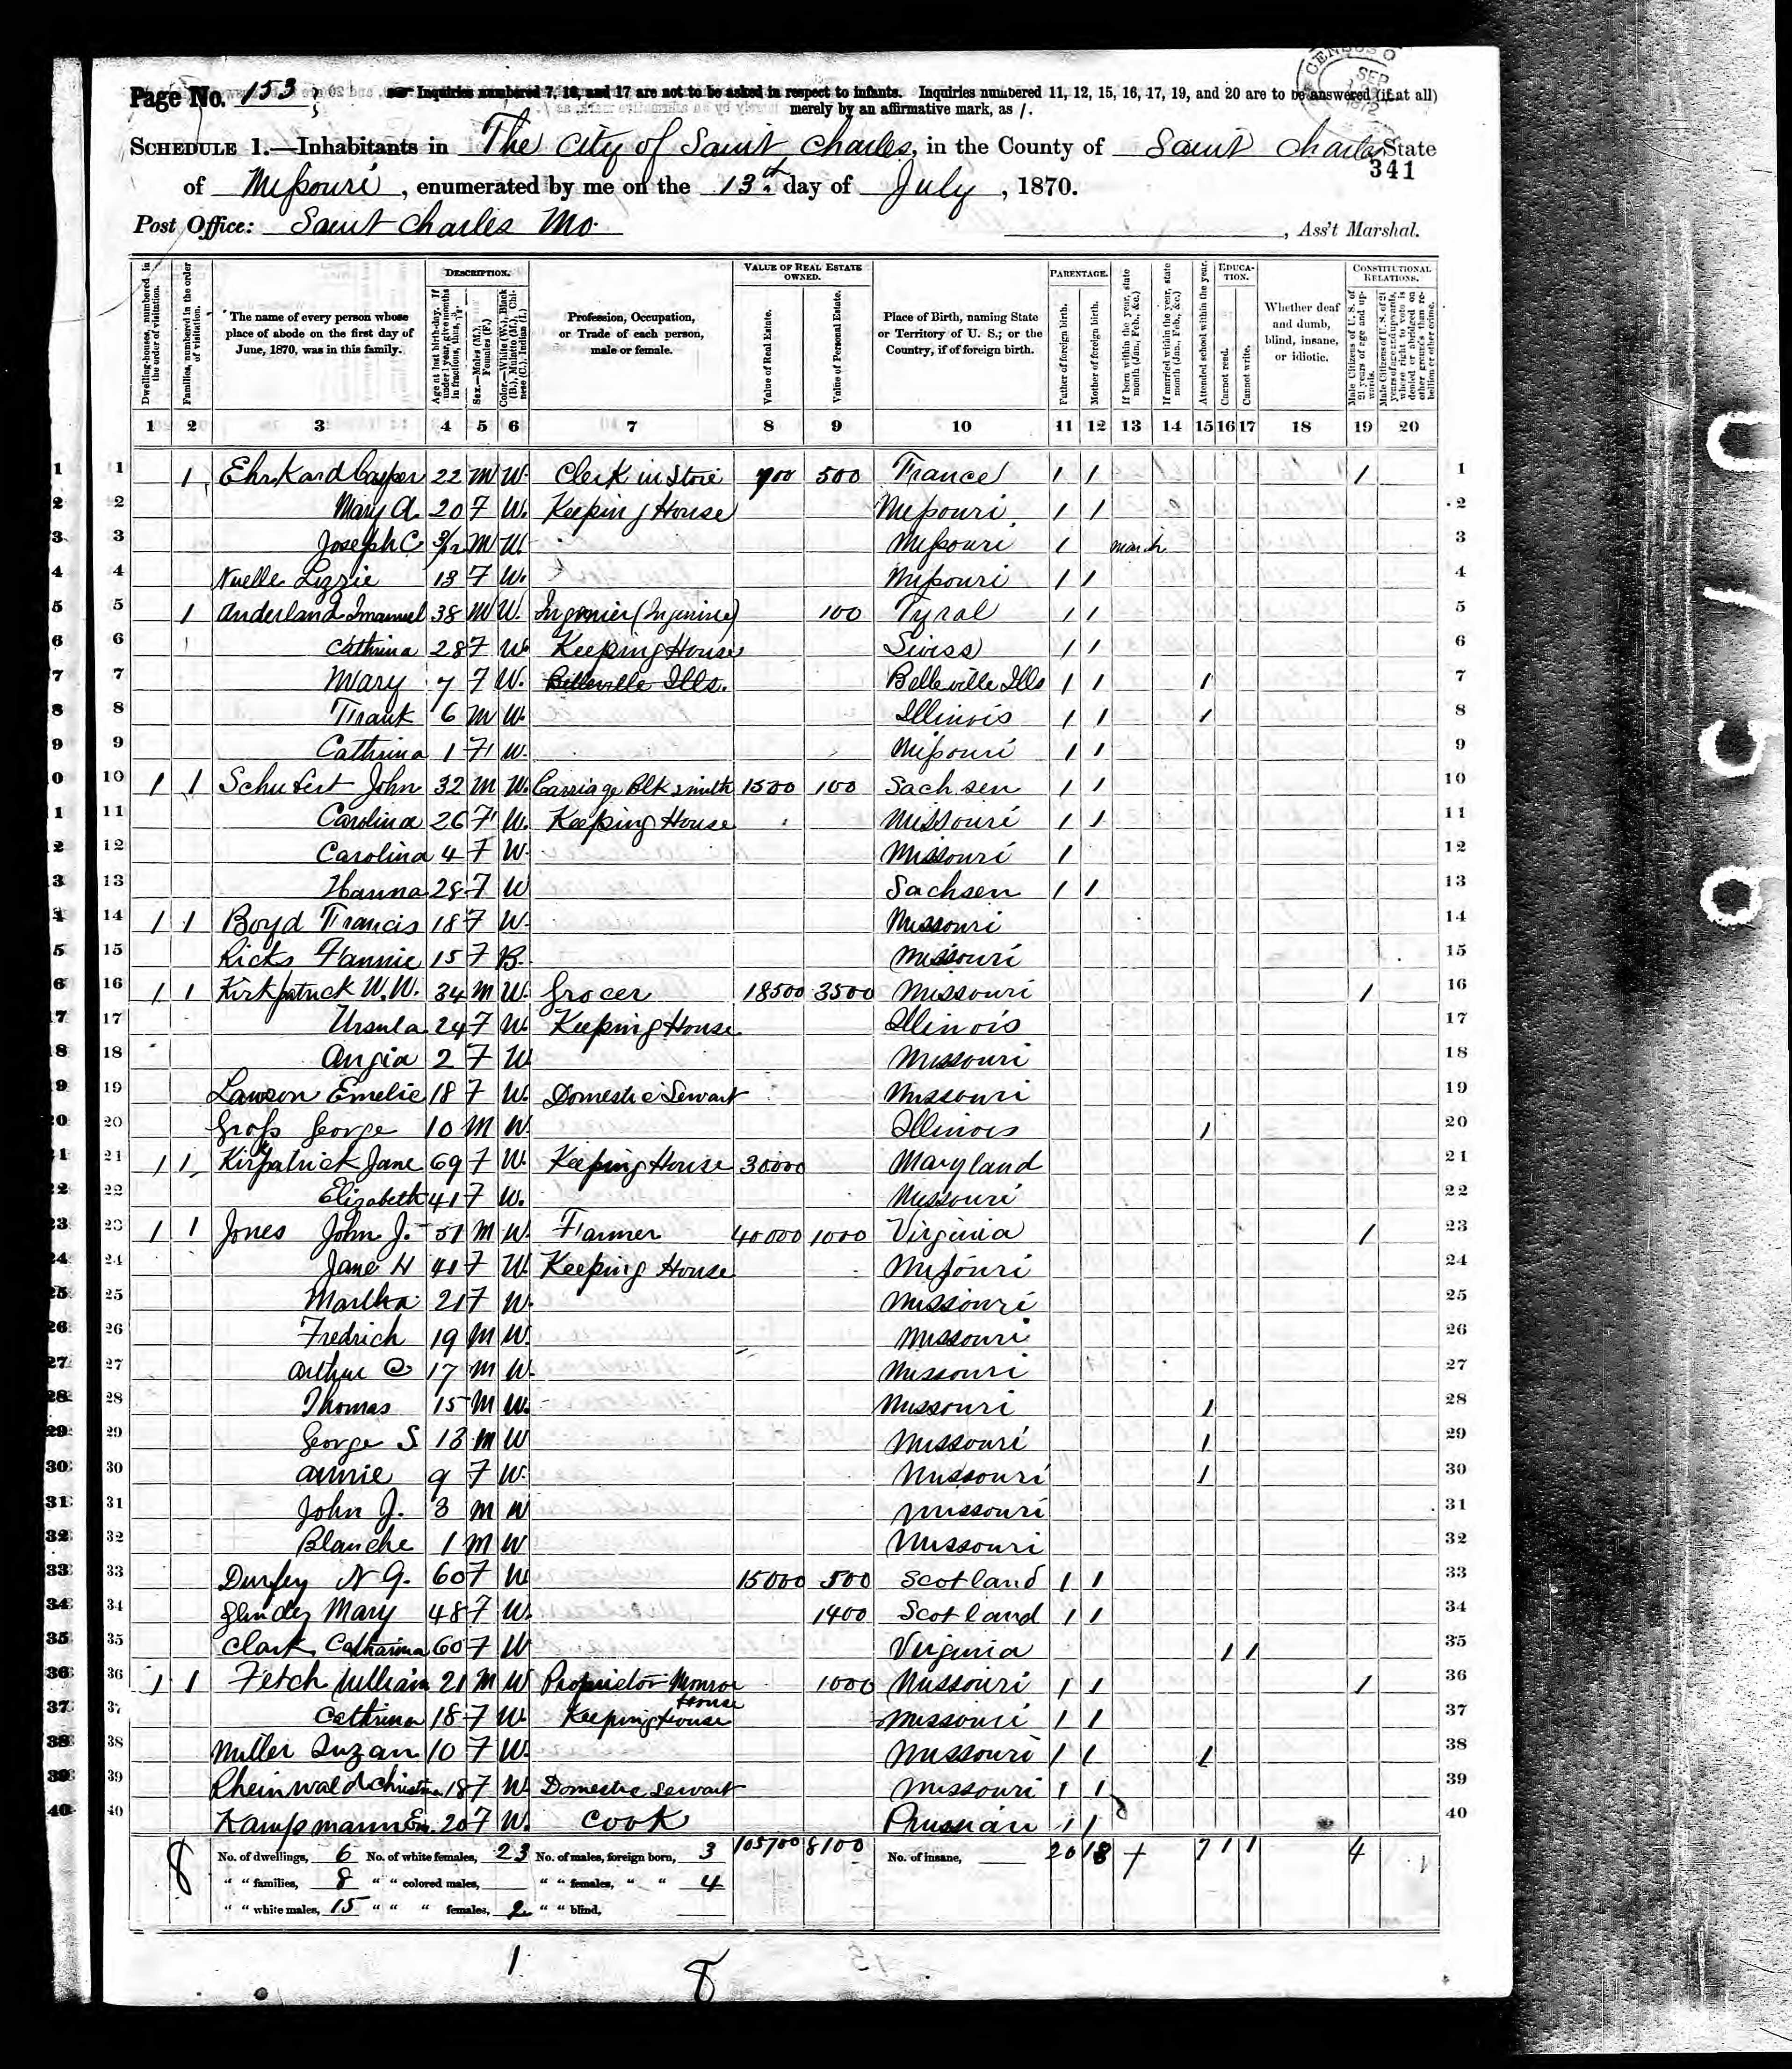 Page No. 153
Inquiries numbered 7, 16, and 17 are not to be asked in respect to infants. Inquiries numbered 11, 12, 15, 16, 17, 19, and 20 are to be answered (if at all)
merely by an affirmative mark, as /.
SCHEDULE 1.—Inhabitants in The City of Saint Charles, in the County of Saint Charles State
341
of Missouri, enumerated by me on the 13th day of July, 1870.
Post Office: Saint Charles Mo.
, Ass't Marshal.
Dwelling-houses, numbered in the order of visitation.
Families, numbered in the order of visitation.
The name of every person whose place of abode on the first day of June, 1870, was in this family.
DESCRIPTION.
Age at last birth-day. If under 1 year, give months in fractions, thus, 3/12.
Sex.—Males (M.), Females (F.)
Color.—White (W.), Black (B.), Mulatto (M.), Chinese (C.), Indian (I.)
Profession, Occupation, or Trade of each person, male or female.
VALUE OF REAL ESTATE OWNED.
Value of Real Estate.
Value of Personal Estate.
Place of Birth, naming State or Territory of U. S.; or the Country, if of foreign birth.
PARENTAGE.
Father of foreign birth.
Mother of foreign birth.
If born within the year, state month (Jan., Feb., &c.)
If married within the year, state month (Jan., Feb., &c.)
Attended school within the year.
EDUCATION.
Cannot read.
Cannot write.
Whether deaf and dumb, blind, insane, or idiotic.
CONSTITUTIONAL RELATIONS.
Male Citizens of U. S. of 21 years of age and upwards.
Male Citizens of U. S. of 21 years of age and upwards, whose right to vote is denied or abridged on other grounds than rebellion or other crime.
1 2 3 4 5 6 7 8 9 10 11 12 13 14 15 16 17 18 19 20
1 1 Ehrhard Casper 22 M W. Clerk in Store 700 500 France / / / 1
2 Mary A. 20 F W. Keeping House Missouri / / 2
3 Joseph C 3/12 M W. Missouri / March 3
4 Nuelle Lizzie 13 F W. Missouri / / 4
5 1 Anderland Imanuel 38 M W. 100 Tyral / / 5
6 Cathrina 28 F W. Keeping House Swiss / / 6
7 Mary 7 F W. Belleville Ills. Belleville Ills / / / 7
8 Frank 6 M W. Illinois / / / 8
9 Cathrina 1 F W. Missouri / / 9
10 1 1 Schubert John 32 M W. Carriage Blksmith 1500 100 Sachsen / / 10
11 Carolina 26 F W. Keeping House Missouri / / 11
12 Carolina 4 F W. Missouri / 12
13 Hanna 28 F W Sachsen / / 13
14 1 1 Boyd Francis 18 F W. Missouri 14
15 Ricks Fannie 15 F B. Missouri 15
16 1 1 Kirkpatrick W.W. 34 M W. Grocer 18500 3500 Missouri / 16
17 Ursula 24 F W. Keeping House Illinois 17
18 Angia 2 F W Missouri 18
19 Lawson Emelie 18 F W. Domestic Servant Missouri 19
20 Gross George 10 M W. Illinois / 20
21 1 1 Kirpatrick Jane 69 F W. Keeping House 30000 Maryland 21
22 Elizabeth 41 F W. Missouri 22
23 1 1 Jones John J. 51 M W. Farmer 40000 1000 Virginia / 23
24 Jane H 41 F W. Keeping House Missouri 24
25 Martha 21 F W. Missouri 25
26 Fredrich 19 M W. Missouri 26
27 Arthur C 17 M W. Missouri 27
28 Thomas 15 M W. Missouri / 28
29 George S. 13 M W Missouri / 29
30 Annie 9 F W. Missouri / 30
31 John J. 3 M W Missouri 31
32 Blanche 1 M W Missouri 32
33 Durfey N G. 60 F W 15000 500 Scotland / / 33
34 Mary 48 F W. 1400 Scotland / / 34
35 Clark Catharina 60 F W Virginia / / 35
36 1 1 Fetch William 21 M W Proprietor Monroe House 1000 Missouri / / / 36
37 Cathrina 18 F W. Keeping House Missouri / / 37
38 Miller Suzan 10 F W. Missouri / / / 38
39 Rheinwald Christina 18 F W. Domestic Servant Missouri / / 39
40 Kampmann Em. 20 F W. Cook Prussian / / 40
8 No. of dwellings, 6 No. of white females, 23 No. of males, foreign born, 3 105700 8100 No. of insane, 20 18 7 1 1 4
" " families, 8 " " colored males, " " females, " " 4
" " white males, 15 " " " females, 2 " " blind,
1
8